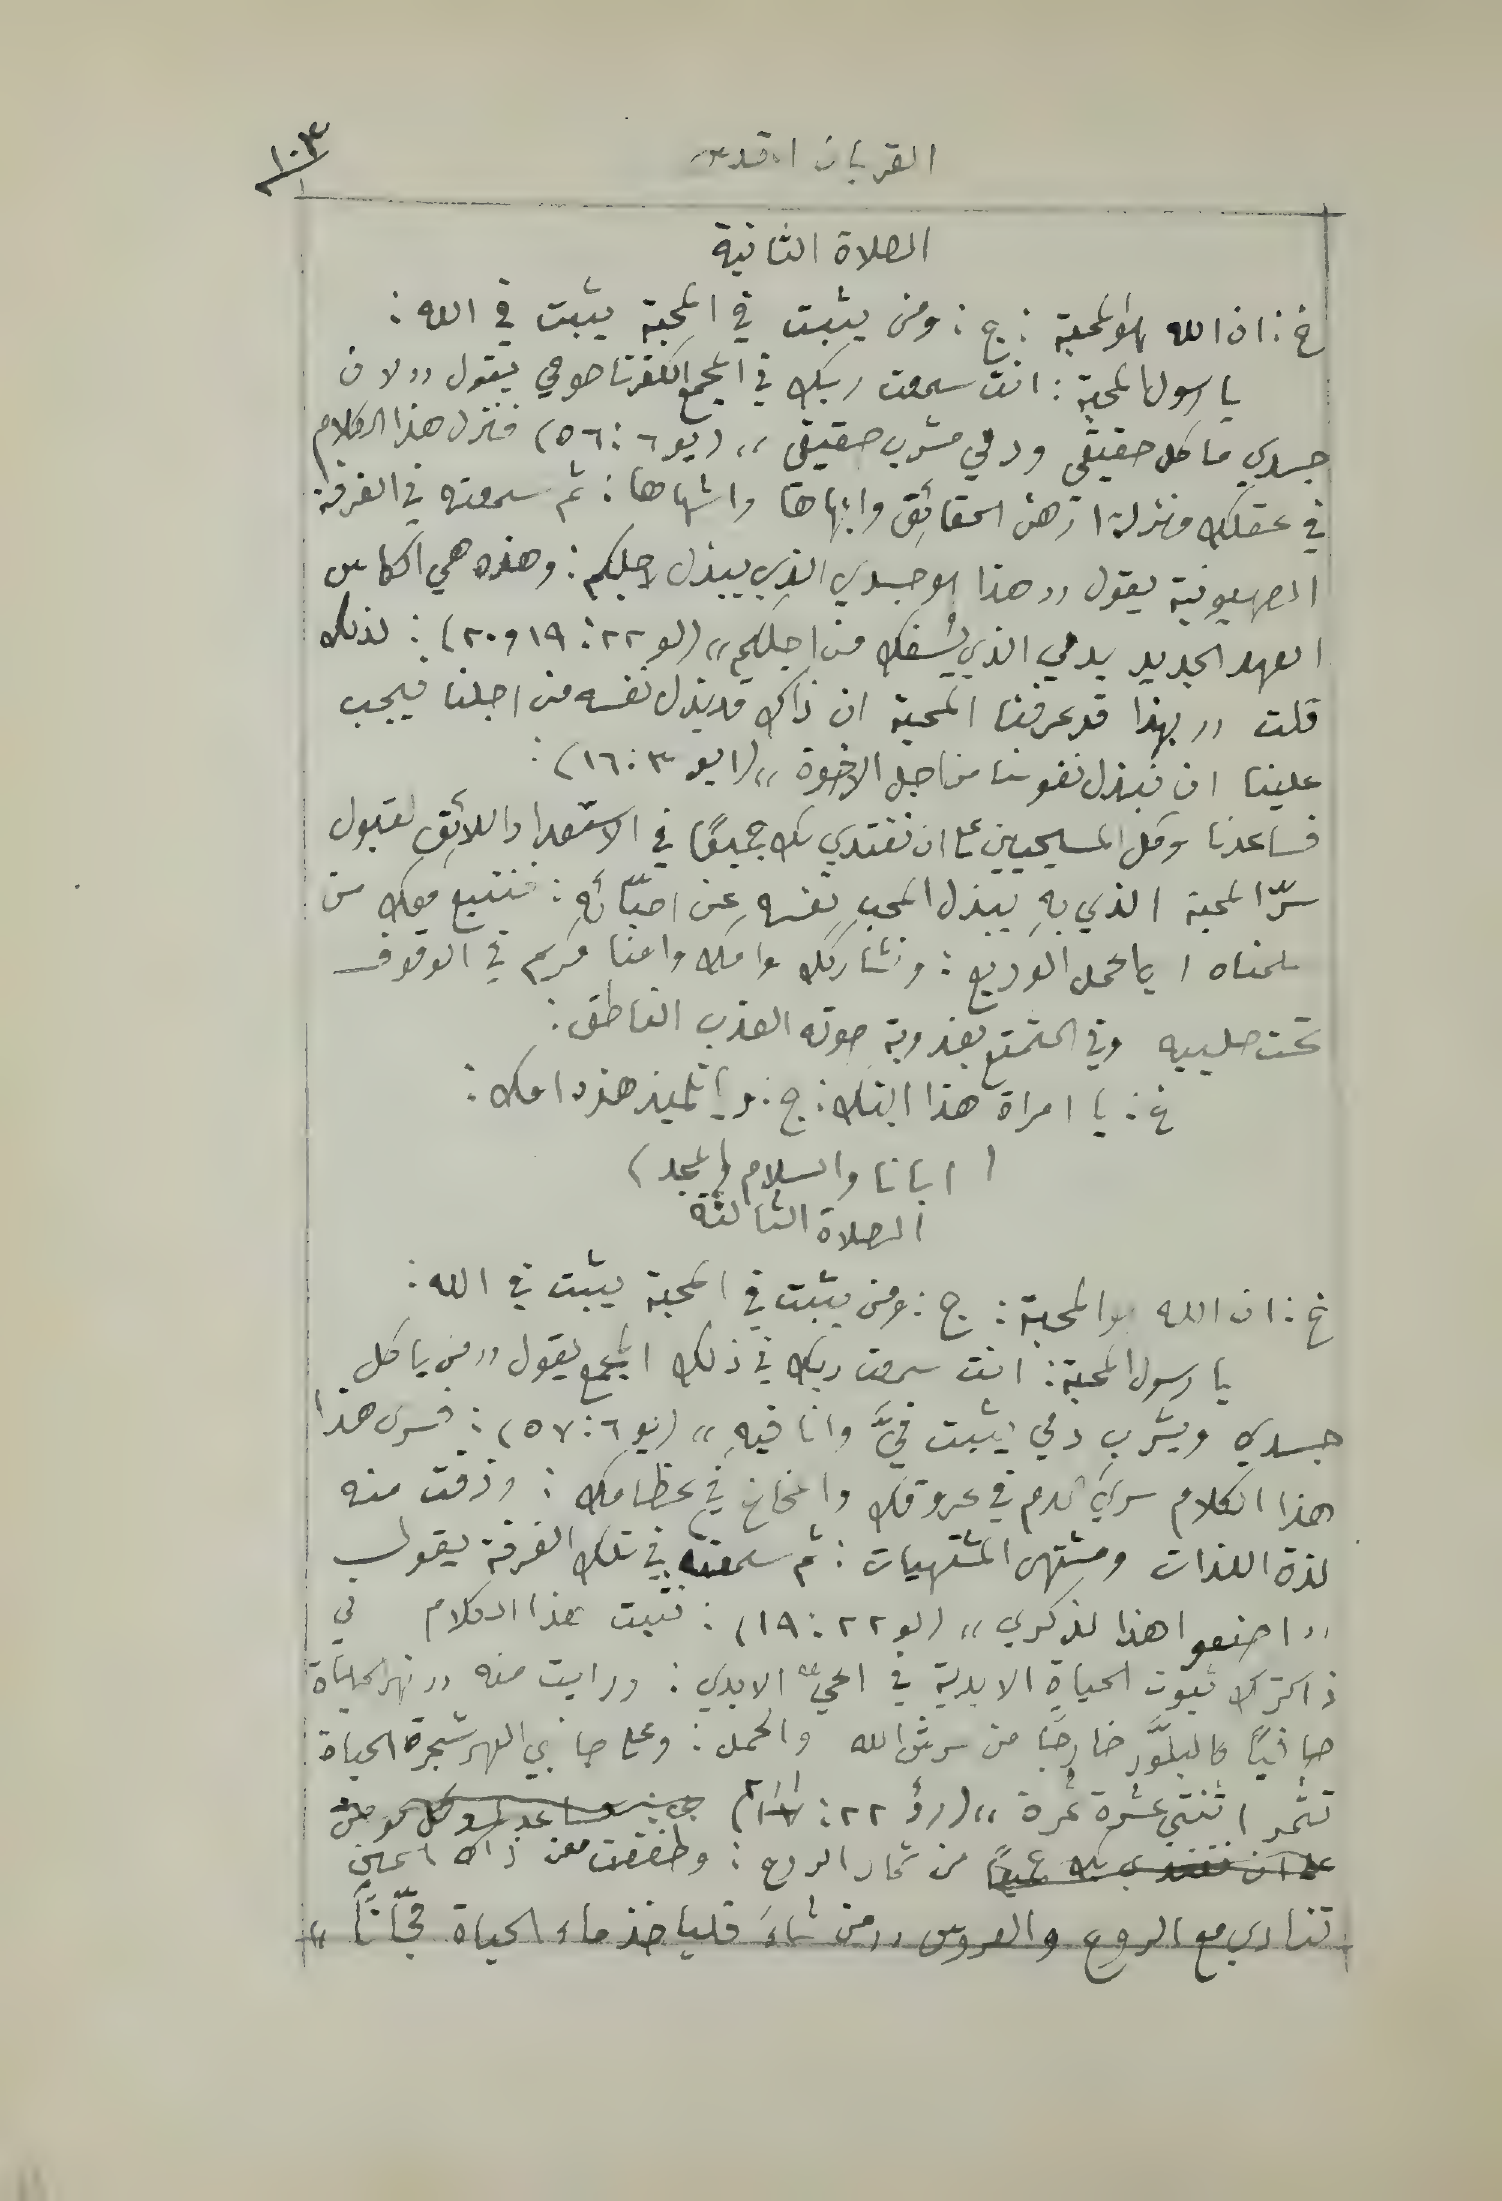 القربان اقدس
١٠٣
الصلاة الثانية
خ : ان الله هو المحبة : ج : ومن يثبت في المحبة يثبت في الله :
يا رسول المحبة : انت سمعت ربك في المجمع الكفرناحومي يقول „ لان
جسدي ماكل حقيقي ودمي مشرب حقيقي „ (يو ٦ : ٥٦) فنزل هذا الكلام
في عقلك منزلة ازهى الحقائق وابهاها واشهاها : ثم سمعته في الغرفة
الصهيونية يقول „ هذا هو جسدي الذي يبذل لاجلكم : وهذه هي الكاس
العهد الجديد بدمي الذي يُسفك من اجلكم „ (لو ٢٢ : ١٩ و ٢٠) : لذلك
قلت „ بهذا قد عرفنا المحبة ان ذاك قد بذل نفسه من اجلنا فيجب
علينا ان نبذل نفوسنا من اجل الاخوة „ (١ يو ٣ : ١٦) :
فساعدنا وكل المسيحيين على ان نقتدي بك جميعًا في الاستعداد اللائق لقبول
سرّ المحبة الذي بهِ يبذل المحب نفسهِ عن احبّائهِ : فنتبع معك من
يا حمل الوديع : ونشاركك وامك وامنا مريم في الوقوف
تحت صليبه وفي التمتع بعذوبة صوته العذب الناطق :
خ : يا امراة هذا ابنك : ج : ويا تلميذ هذه امك :
( ابانا والسلام والمجد )
الصلاة الثالثة
خ : ان الله هو المحبة : ج : ومن يثبت في المحبة يثبت في الله :
يا رسول المحبة : انت سمعت ربك في ذلك المجمع يقول „ من ياكل
جسدي ويشرب دمي يثبت فيَّ وانا فيهِ „ (يو ٦ : ٥٧) : فسرى هذا
هذا الكلام سري الدم في عروقك والمخاخ في عظامك : وذقت منه
لذة اللذات ومشتهى المشتهيات : ثم سمعته في تلك الغرفة يقول
„ اصنعوا هذا لذكري „ (لو ٢٢ : ١٩) : فثبت هذا الكلام في
ذاكرتك ثبوت الحياة الابدية في الحيّ الابدي : ورايت منه „ نهر الحياة
صافيًا كالبلَّور خارجًا من عرش الله والحمل : وعلى جانبي النهر شجرة الحياة
تثمر اثنتي عشرة ثمرة „ (رؤ ٢٢ : ١ و ٢)
على ان نقتدي بك جميعًا من ثمار الروح : وطفقت من ذاك الحين
تنادي مع الروح والعروس „ من شاءَ فلياخذ ماء الحياة مجّانًا „